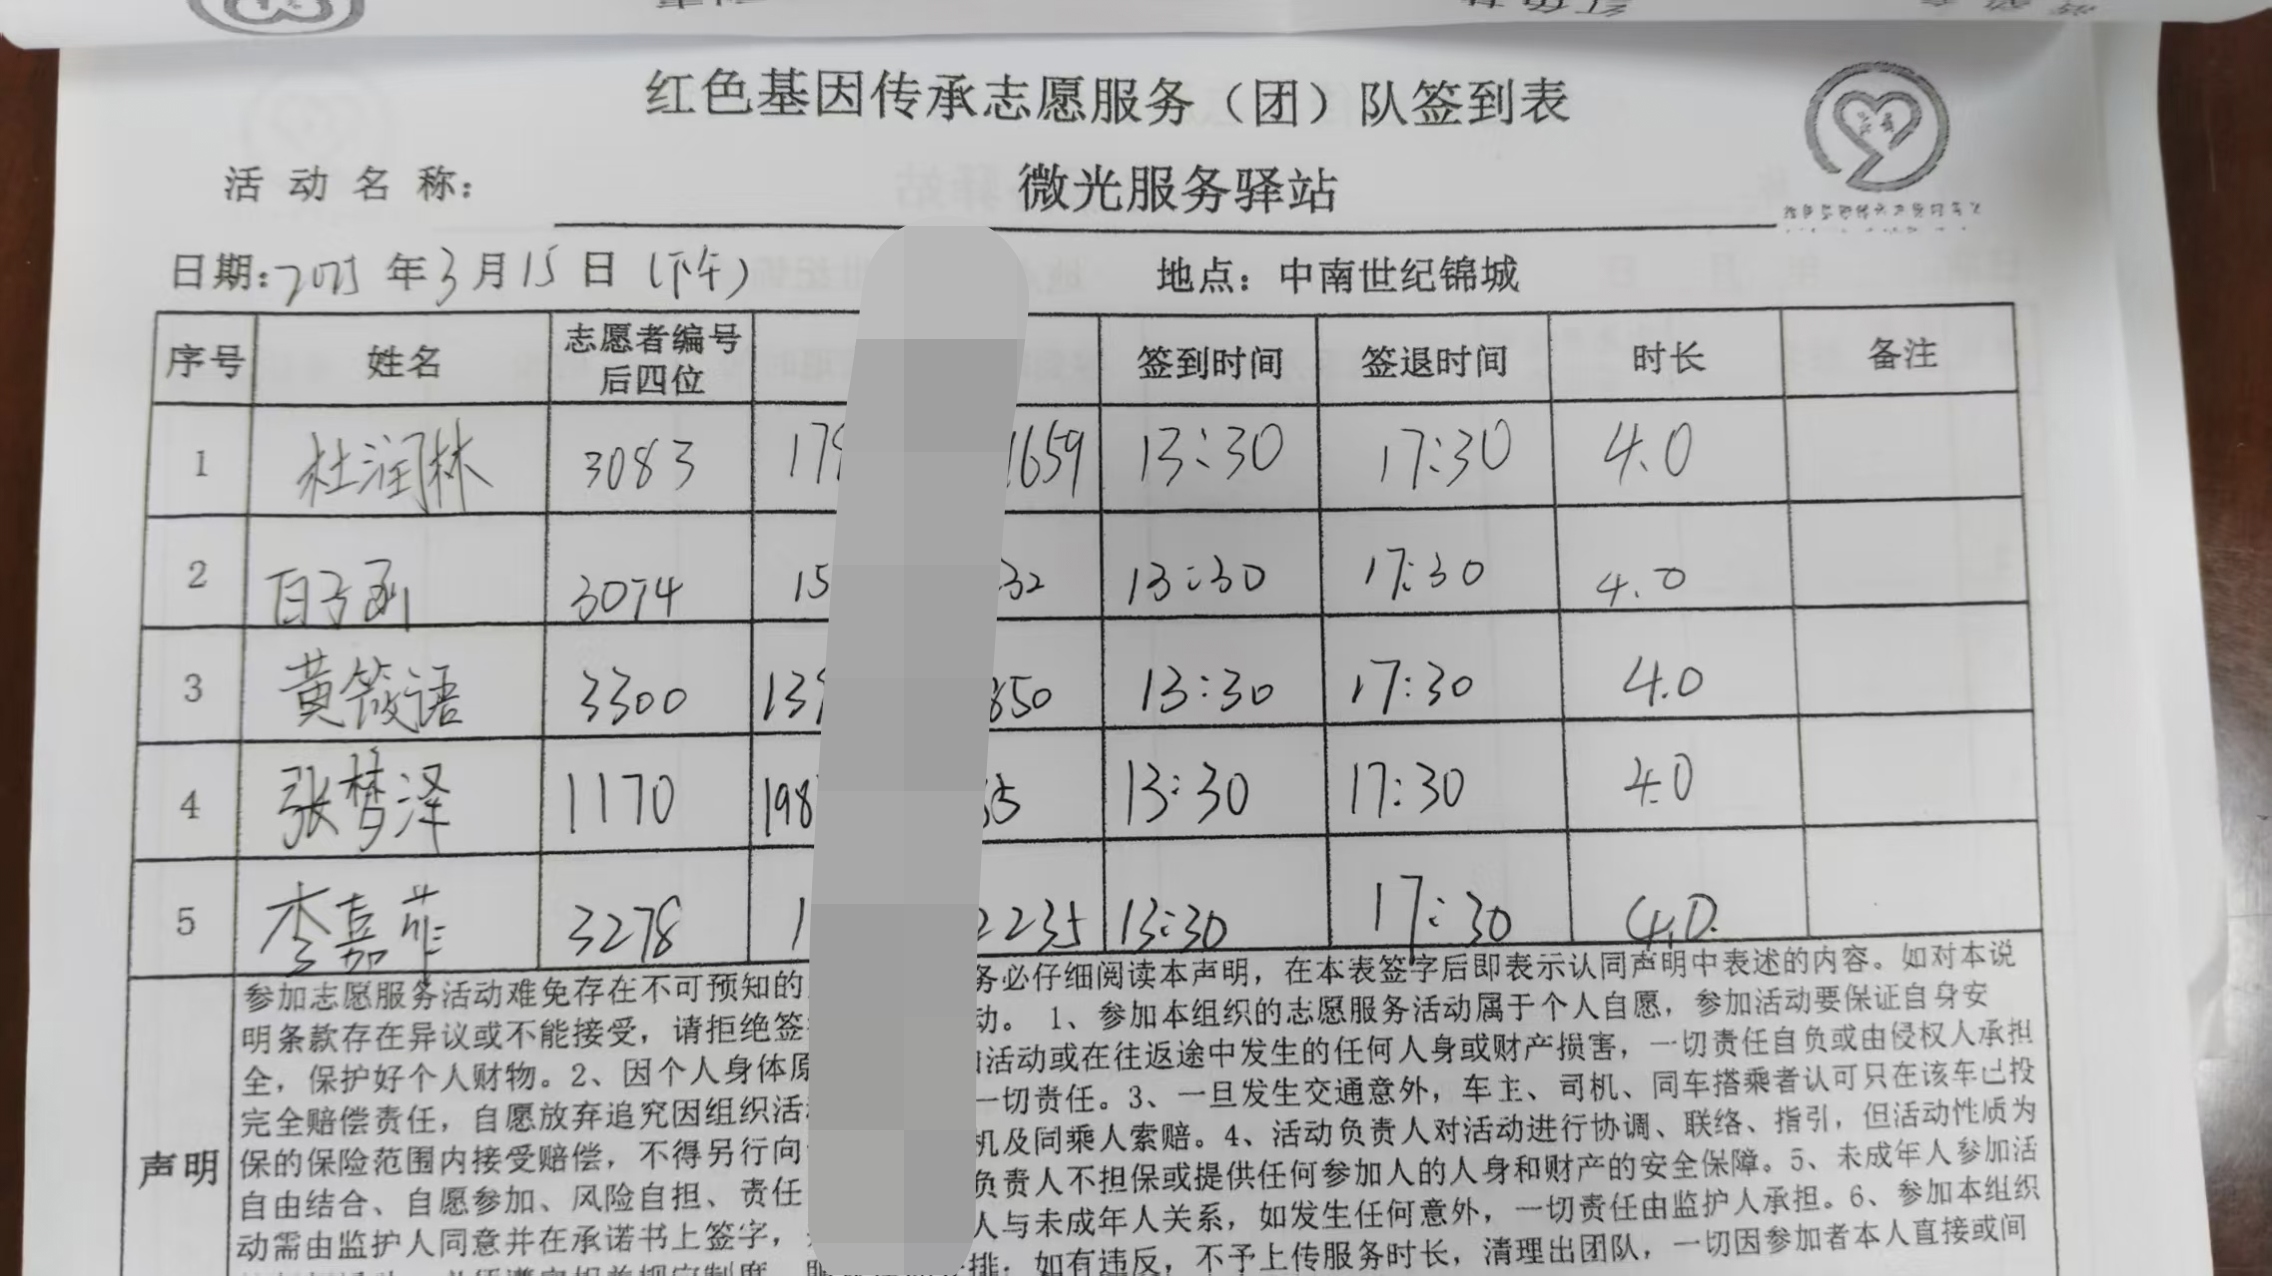 红色基因传承志愿服务（团）队签到表
活动名称： 微光服务驿站
日期：2025年3月15日（下午） 地点：中南世纪锦城
序号 姓名 志愿者编号后四位 签到时间 签退时间 时长 备注
1 杜润林 3083 179 1659 13:30 17:30 4.0
2 白子函 3074 15 32 13:30 17:30 4.0
3 黄筱语 3300 139 850 13:30 17:30 4.0
4 张梦泽 1170 198 13:30 17:30 4.0
5 李嘉菲 3278 1 2235 13:30 17:30 4.0
声明
参加志愿服务活动难免存在不可预知的 务必仔细阅读本声明，在本表签字后即表示认同声明中表述的内容。如对本说
明条款存在异议或不能接受，请拒绝签 动。 1、参加本组织的志愿服务活动属于个人自愿，参加活动要保证自身安
全，保护好个人财物。2、因个人身体原 活动或在往返途中发生的任何人身或财产损害，一切责任自负或由侵权人承担
完全赔偿责任，自愿放弃追究因组织活 一切责任。3、一旦发生交通意外，车主、司机、同车搭乘者认可只在该车已投
保的保险范围内接受赔偿，不得另行向 机及同乘人索赔。4、活动负责人对活动进行协调、联络、指引，但活动性质为
自由结合、自愿参加、风险自担、责任 负责人不担保或提供任何参加人的人身和财产的安全保障。5、未成年人参加活
动需由监护人同意并在承诺书上签字， 人与未成年人关系，如发生任何意外，一切责任由监护人承担。6、参加本组织
排；如有违反，不予上传服务时长，清理出团队，一切因参加者本人直接或间